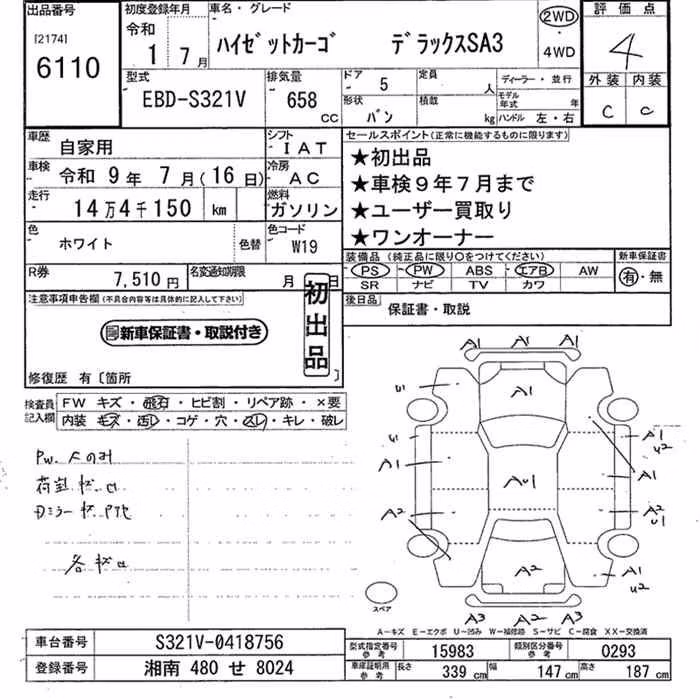 出品番号
[2174]
6110
初度登録年月
令和
1 7月
車名・グレード
ハイゼットカーゴ デラックスSA3
2WD
・
4WD
評価点
4
外装 内装
C C
型式
EBD-S321V
排気量
658
CC
ドア 5
形状 バン
定員 人
積載 kg
ディーラー・並行
モデル年式 年
ハンドル 左・右
車歴
自家用
シフト
IAT
車検
令和 9年 7月(16日)
冷房
AC
走行
14万4千150 km
燃料
ガソリン
色
ホワイト
色替
色コード
W19
R券
7,510円
名変通知期限
月 日
セールスポイント(正常に機能するものに限ります)
★初出品
★車検9年7月まで
★ユーザー買取り
★ワンオーナー
装備品(純正品に限り○をつけてください)
PS PW ABS エアB AW
SR ナビ TV カワ
新車保証書
有・無
後日品
保証書・取説
注意事項申告欄(不具合内容等は具体的に記入して下さい)
新車保証書・取説付き
初出品
修復歴 有〔箇所 〕
検査員記入欄
FW キズ・飛石・ヒビ割・リペア跡・×要
内装 キズ・汚レ・コゲ・穴・スレ・キレ・破レ
Pw.Fのみ
各キズ凹
A1 A1 A1
A1
U1
U1
A1
A2
AU1
A1
U2
A1
A2
U1
A2
A1
U2
A3 A2 A3
スペア
A-キズ E-エクボ U-凹み W-補修跡 S-サビ C-腐食 XX-交換済
車台番号
S321V-0418756
登録番号
湘南 480 せ 8024
型式指定番号
参考
15983
類別区分番号
参考
0293
車庫証明用
参考
長さ 339 cm
幅 147 cm
高さ 187 cm